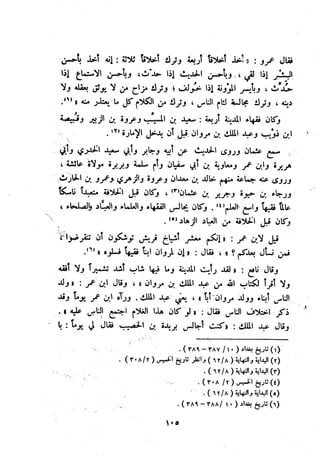 فقال عمرو : « أخذ أخلاقاً أربعة وترك أخلاقاً ثلاثة : إنه أخذ بأحسن
البشر إذا لقي ، وبأحسن الحديث إذا حدث ، وبأحسن الاستماع إذا
حُدث ، وبأيسر المؤونة إذا خولف ؛ وترك مزاح من لا يوثق بعقله ولا
دينه ، وترك مجالسة لئام الناس ، وترك من الكلام كل ما يعتذر منه »(١) .
وكان فقهاء المدينة أربعة : سعيد بن المسيب وعروة بن الزبير وقبيصة
ابن ذؤيب وعبد الملك بن مروان قبل أن يدخل الإمارة(٢) .
سمع عثمان وروى الحديث عن أبيه وجابر وأبي سعيد الخدري وأبي
هريرة وابن عمر ومعاوية بن أبي سفيان وأم سلمة وبريرة مولاة عائشة ،
وروى عنه جماعة منهم خالد بن معدان وعروة والزهري وعمرو بن الحارث
ورجاء بن حيوة وجرير بن عثمان(٣) ، وكان قبل الخلافة متعبداً ناسكاً
عالماً فقيهاً واسع العلم(٤) . وكان يجالس الفقهاء والعلماء والعبّاد والصلحاء ،
وكان قبل الخلافة من العباد الزهاد(٥) .
قيل لابن عمر : « إنكم معشر أشياخ قريش توشكون أن تنقرضوا ،
فمن نسأل بعدكم ؟ » ، فقال : « إن لمروان ابناً فقيهاً فسلوه »(٦) .
وقال نافع : « لقد رأيت المدينة وما فيها شاب أشد تشميراً ولا أفقه
ولا أقرأ لكتاب الله من عبد الملك بن مروان » ، وقال ابن عمر : « ولد
الناس أبناء وولد مروان أباً » ، يعني عبد الملك . ورآه ابن عمر يوماً وقد
ذكر اختلاف الناس فقال : « لو كان هذا الغلام اجتمع الناس عليه » .
وقال عبد الملك : « كنت أجالس بريدة بن الحصيب فقال لي يوماً : يا
(١) تاريخ بغداد ( ١٠ / ٣٨٧ – ٣٨٩ ) .
(٢) البداية والنهاية ( ٨ / ٦٢ ) وانظر تاريخ الخميس ( ٢ / ٣٠٨ ) .
(٣) البداية والنهاية ( ٨ / ٦٢ ) .
(٤) تاريخ الخميس ( ٢ / ٣٠٨ ) .
(٥) البداية والنهاية ( ٨ / ٦٢ ) .
(٦) تاريخ بغداد ( ١٠ / ٣٨٨ – ٣٨٩ ) .
١٠٥